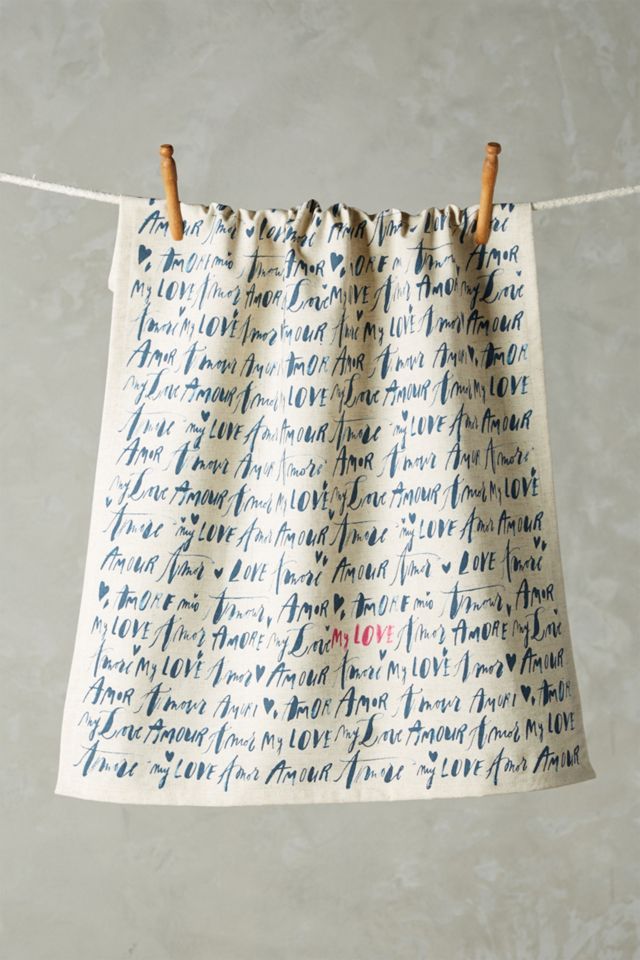 AMOUR Amor ♥ LOVE
♥, AMORE mio Amour AMOR ♥, ORE mio Amour AMOR
My LOVE Amor AMOR my Love My LOVE Amor AMOR my Love
Amore My LOVE Amor AMOUR Amore My LOVE Amor AMOUR
AMOR Amour AMORE AMOR AMOR Amour AMORI ♥, AMOR
my Love AMOUR Amor My LOVE my Love AMOUR Amor My LOVE
Amore my LOVE Amor AMOUR Amore my LOVE Amor AMOUR
AMOR Amour AMOR Amore AMOR Amour AMOR Amore
my Love AMOUR Amor My LOVE my Love AMOUR Amor My LOVE
Amore my LOVE Amor AMOUR Amore my LOVE Amor AMOUR
AMOUR Amor ♥ LOVE Amore AMOUR Amor ♥ LOVE Amore
♥, AMORE mio Amour, AMOR ♥, AMORE mio Amour, AMOR
My LOVE Amor AMORE my Love My LOVE Amor AMORE my Love
Amore My LOVE Amor ♥ AMOUR Amore My LOVE Amor ♥ AMOUR
AMOR Amour AMORI ♥, AMOR AMOR Amour AMORI ♥, AMOR
my Love AMOUR Amor My LOVE my Love AMOUR Amor My LOVE
Amore my LOVE Amor AMOUR Amore my LOVE Amor AMOUR